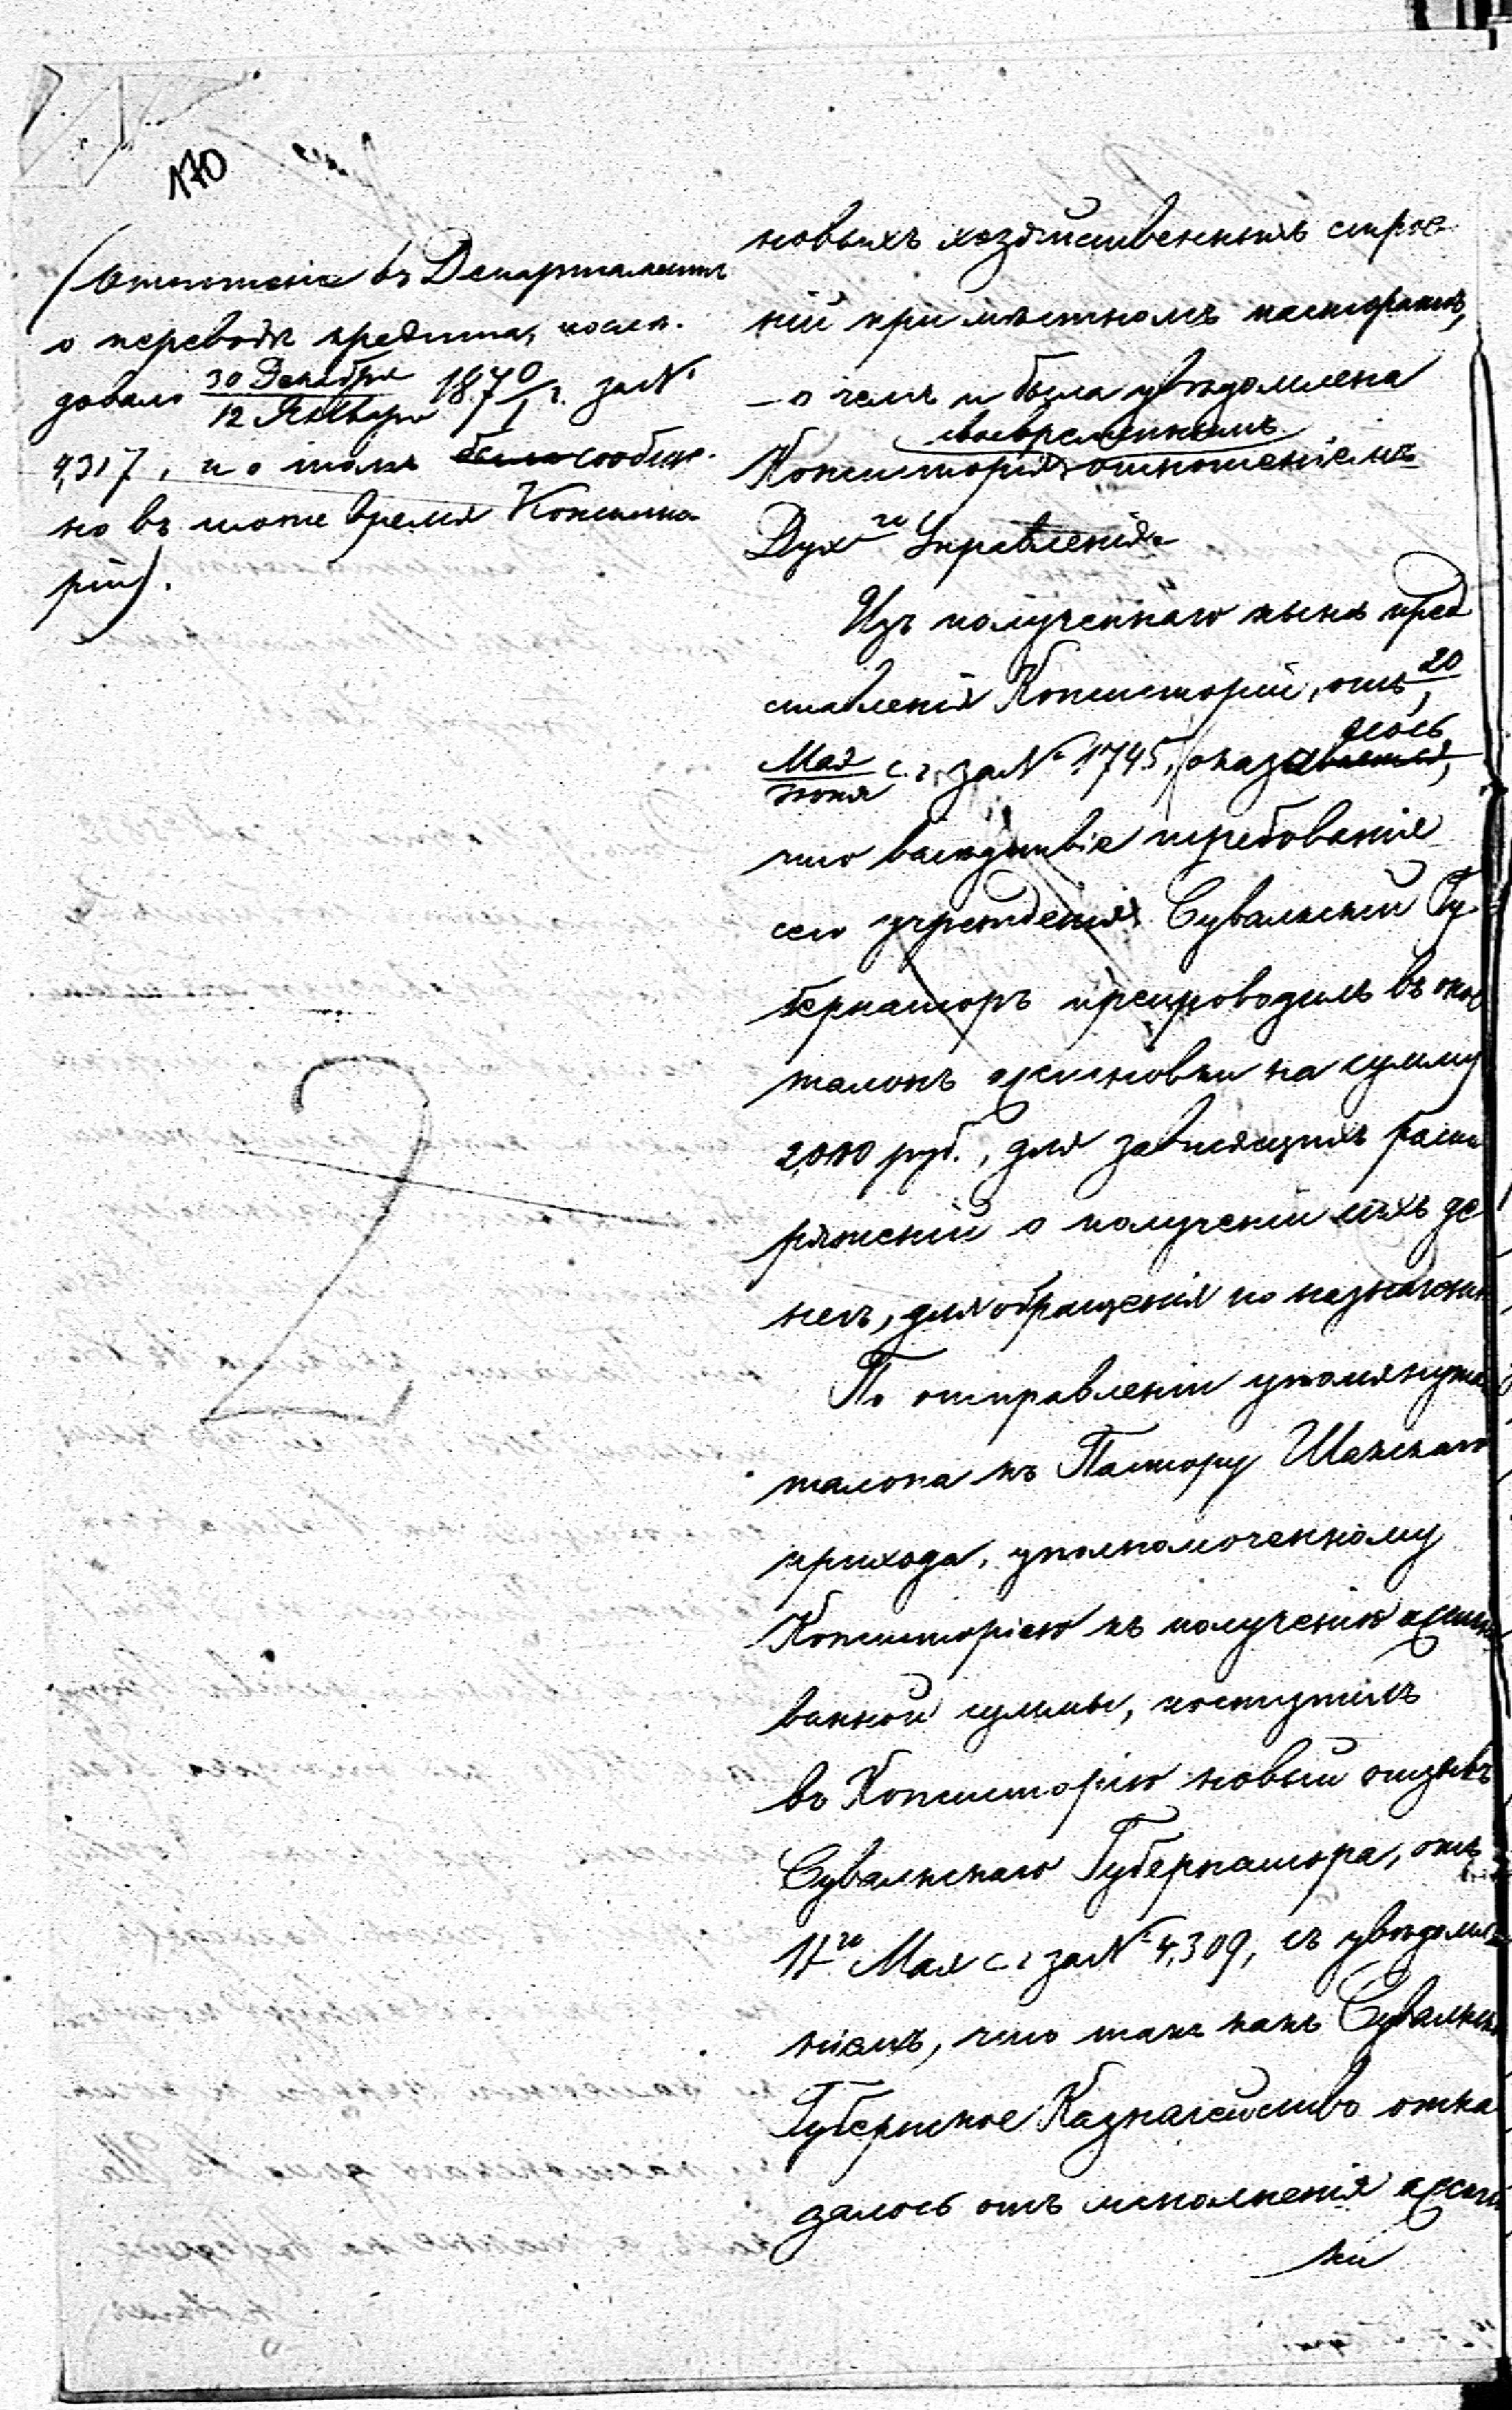 170
(Отношеніе въ Департаментъ
о переводѣ кредита, послѣ-
довало 30 Декабря / 12 Января 1870/1 г. за №
4,317, и о томъ было сообще-
но въ тоже время Консисто-
ріи).
новыхъ хозяйственныхъ строе-
ній при мѣстномъ пасторатѣ,
– о чемъ и была увѣдомлена
своевременнымъ
Консисторія отношеніемъ
Дух го Управленія.
Изъ полученнаго нынѣ пред
ставленія Консисторіи, отъ 20
Мая / Іюня с. г. за № 1745, оказывается,
лось
что вслѣдствіе требованія
сего учрежденія Сувалкскій Гу-
бернаторъ препроводилъ въ оное
талонъ ассигновки на сумму
2,000 руб., для зависящихъ распо
ряженій о полученіи сихъ де
негъ, для обращенія по назначенію
По отправленіи упомянутаго
талона къ Пастору Шакскаго
прихода, уполномоченному
Консисторіею къ полученію ассигно
ванной суммы, поступилъ
въ Консисторію новый отзывъ
Сувалкскаго Губернатора, отъ
17 го Мая с. г. за № 4,309, съ увѣдомле
ніемъ, что такъ какъ Сувалкское
Губернское Казначейство отка
залось отъ исполненія ассигнов
ки
2